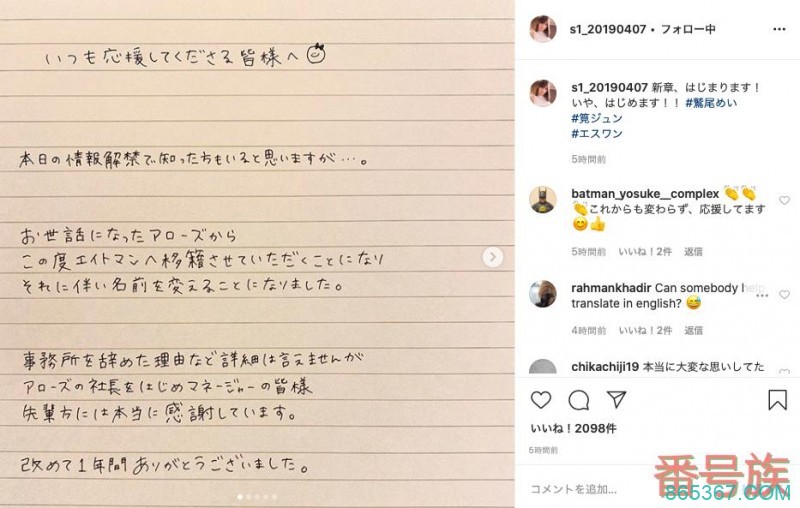 いつも応援してくださる皆様へ
本日の情報解禁で知った方もいると思いますが…。
お世話になったアローズから
この度エイトマンへ移籍させていただくことになり
それに伴い名前を変えることになりました。
事務所を辞めた理由など詳細は言えませんが
アローズの社長をはじめマネージャーの皆様
先輩方には本当に感謝しています。
改めて1年間ありがとうございました。
s1_20190407 • フォロー中
s1_20190407 新章、はじまります!
いや、はじめます!! #鷲尾めい
#筧ジュン
#エスワン
5時間前
batman_yosuke__complex 👏👏
👏これからも変わらず、応援してます
😊👍
5時間前 いいね!2件 返信
rahmankhadir Can somebody help
translate in english? 😅
4時間前 いいね!2件 返信
chikachiji19 本当に大変な思いしてた
いいね!2098件
5時間前
コメントを追加...
番号族
865367.COM